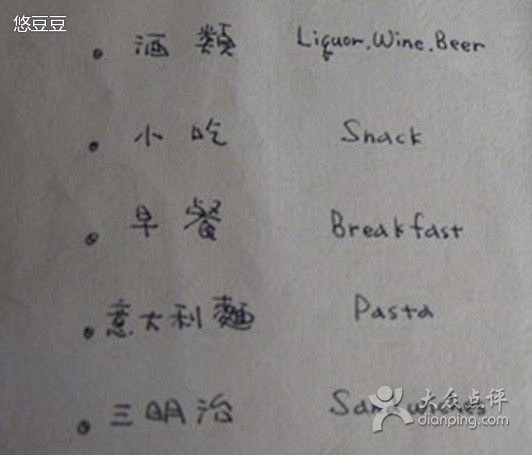 悠豆豆
酒類 Liquor.Wine.Beer
小吃 Snack
早餐 Breakfast
意大利麵 Pasta
三明治
大众点评
dianping.com